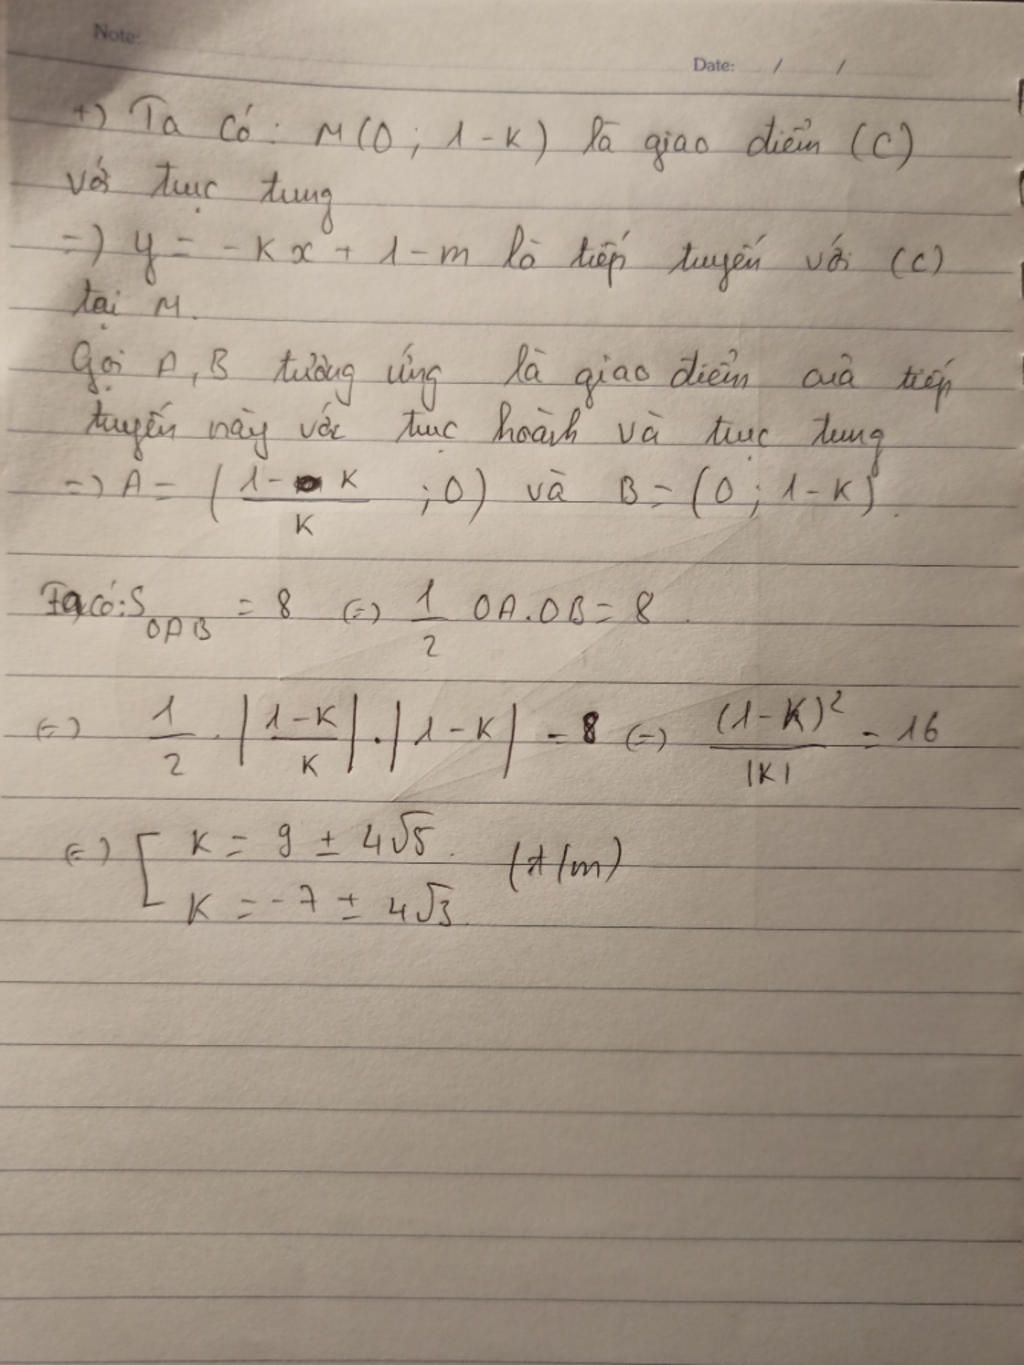 Note:
Date: / /
+) Ta có: M(0; 1-K) là giao điểm (C)
với trục tung
=) y = -Kx + 1-m là tiếp tuyến với (C)
tại M.
Gọi A, B tương ứng là giao điểm của tiếp
tuyến này với trục hoành và trục tung
=) A = ( (1-K)/K ; 0) và B = (0; 1-K).
Ta có: S_OAB = 8 (=) 1/2 OA.OB = 8.
(=) 1/2 . |(1-K)/K| . |1-K| = 8 (=) (1-K)²/|K| = 16
(=) [ K = 9 ± 4√5. (t/m)
K = -7 ± 4√3.